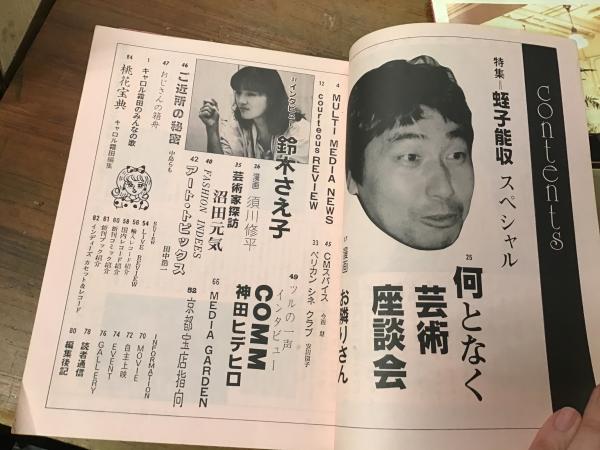 contents
特集
蛭子能収 スペシャル
25 何となく
芸術
座談会
17 漫画 お隣りさん
4 MULTI MEDIA NEWS
12 courteous REVIEW
45 CMスパイス 今西 慧
33 ペリカン シネ クラブ
31 インタビュー
鈴木さえ子
26 漫画 須川修平
35 芸術家探訪
沼田元気
40 FASHION INDEES
42 アート・トピックス 田中浩一
46 ご近所の秘密 中島らも
47 おじさんの箱舟
1 キャロル霜田のみんなの歌
84 桃花宝典 キャロル霜田編集
49 ツルの一声
インタビュー
COMM
神田ヒデヒロ
66 MEDIA GARDEN
82 京都宝店指向
REVIEW
54 LIVE REVIEW
56 輸入レコード紹介
58 国内レコード紹介
60 新刊コミック紹介
61 新刊ブック紹介
62 インディーズ カセット&レコード
INFORMATION
70 MOVIE
72 自主上映
74 EVENT
76 GALLERY
78 読者通信
80 編集後記